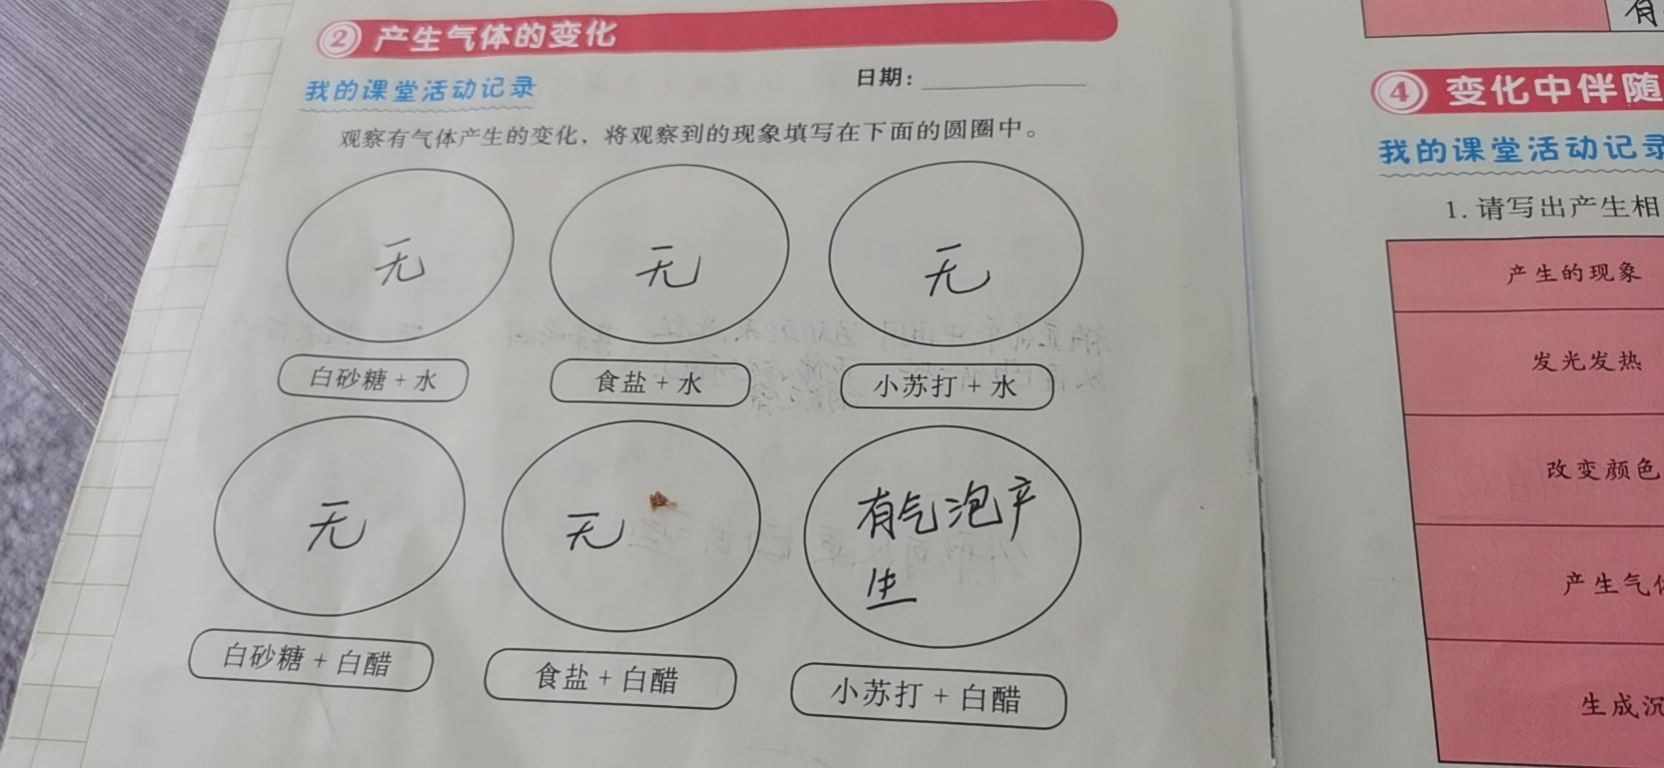 ② 产生气体的变化
我的课堂活动记录
日期:
观察有气体产生的变化，将观察到的现象填写在下面的圆圈中。
无 无 无
白砂糖 + 水 食盐 + 水 小苏打 + 水
无 无 有气泡产
生
白砂糖 + 白醋 食盐 + 白醋 小苏打 + 白醋
有
④ 变化中伴随
我的课堂活动记录
1. 请写出产生相
产生的现象
发光发热
改变颜色
产生气体
生成沉